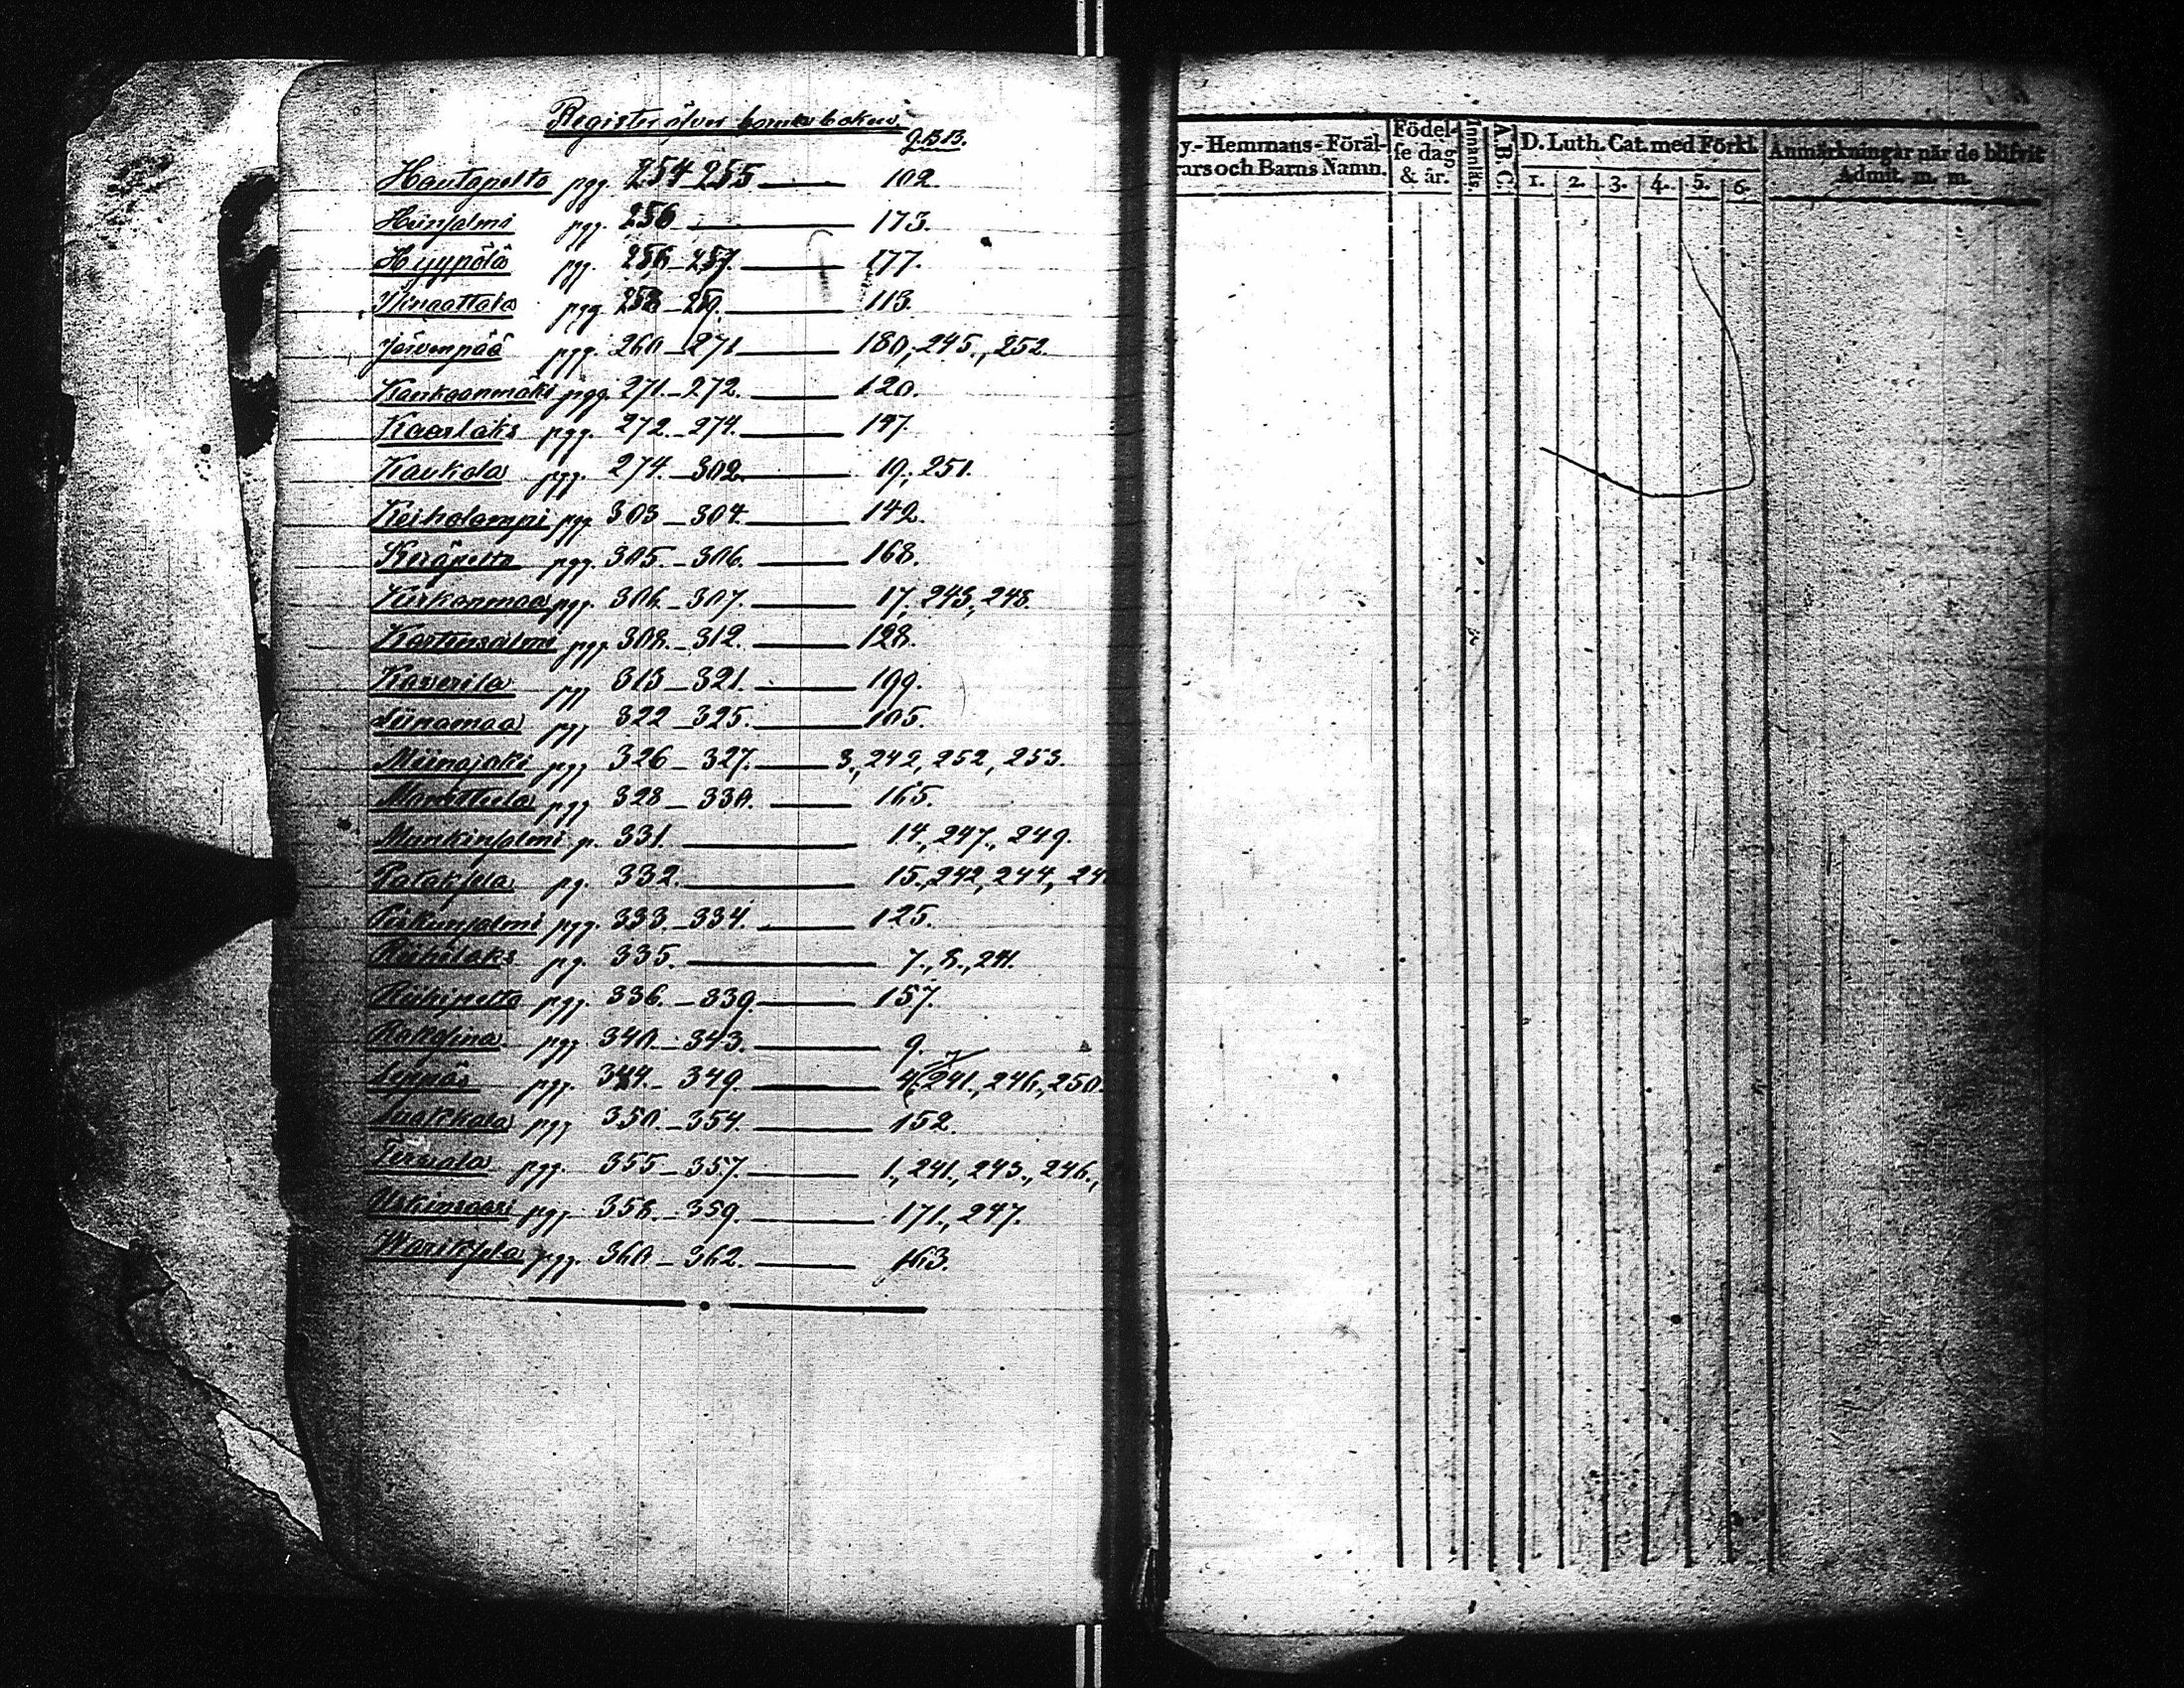 Register öfver barnaboken
g.B.B.
Hautapelto pgg. 254 255 — 102.
Heinsalmi pgg. 256 — 173.
Hyypölä pgg. 256 – 257. — 177.
pgg. 258 – 259. — 113.
Järvenpää pgg. 260 – 271 — 180, 245., 252.
Kankaanmäki pgg. 271. – 272. — 120.
Kaarlaks pgg. 272. – 274. — 147
Kaukola pgg. 274. – 302. — 19., 251.
Keiholampi pgg. 303 – 304. — 142.
Keräpelto pgg. 305. – 306. — 168.
Kiiskanmaa pgg. 306. – 307. — 17. 243., 248.
Kortensalmi pgg. 308. – 312. — 128.
Kaverila pgg 313 – 321. — 199.
Liinamaa pgg 322 – 325. — 105.
Miinajoki pgg 326 – 327. — 3., 242, 252, 253.
pgg. 328 – 330. — 165.
Munkinsalmi p. 331. — 14., 247., 249.
pg. 332. — 15., 242, 244, 24
Piskunsalmi pgg. 333. – 334. — 125.
Riihilaks pg. 335. — 7., 8., 241.
Riihipelto pgg. 336. – 339. — 157.
pgg. 340. – 343. — 9.
Leppäs pgg. 344. – 349. — 4. 241., 246., 250.
pgg 350. – 354. — 152.
Tervola pgg. 355 – 357. — 1., 241., 243., 246.,
pgg. 358. – 359. — 171., 247.
pgg. 360. – 362. — 163.
y-Hemmans-Föräl-
rars och Barns Namn.
Födel-
se dag
& år.
Innanläs.
A.B.C.
D. Luth. Cat. med Förkl.
1. 2. 3. 4. 5. 6.
Anmärkningar när de blifvit
Admit. m. m.